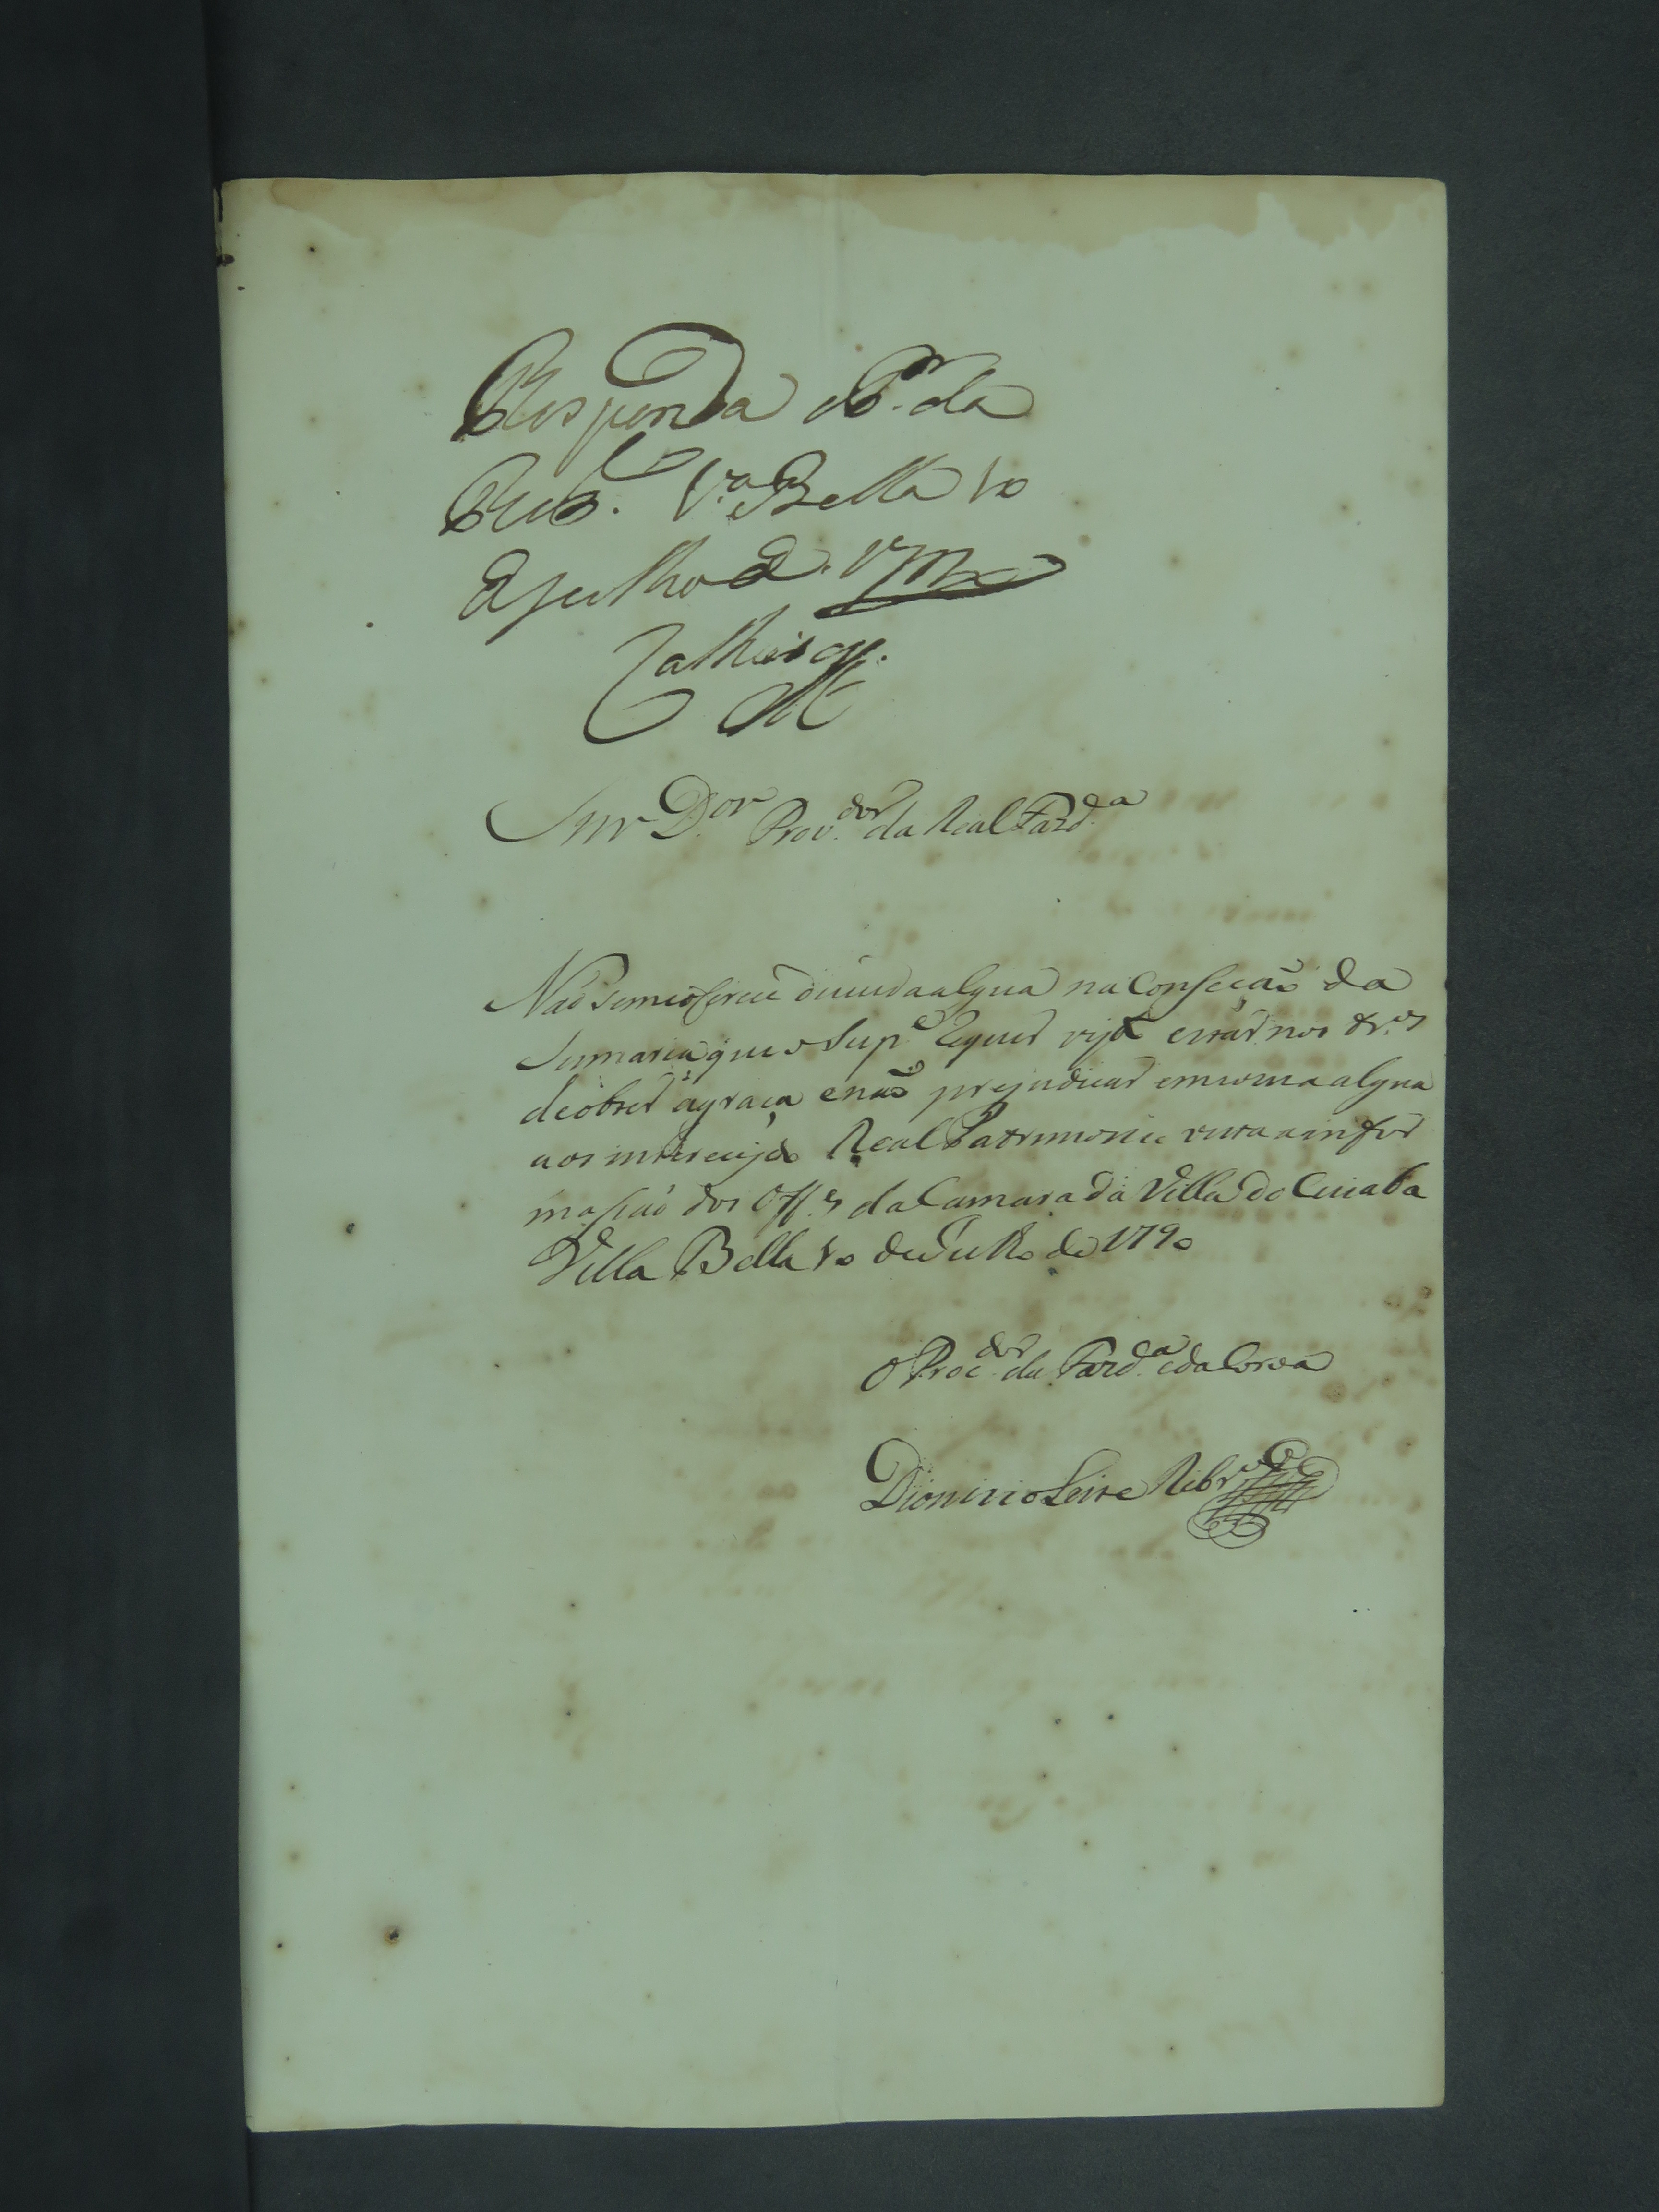 Responda o P.or da
V.a Bella 10
d Julho d. 1790
Snr D.or Prov.dor da Real Fazd.a
Não seme oferece duuida algũa na Conseçaõ da
Sismaria que o Sup.e Requer vist estár nos tr.os
de obter ágraça enaõ prejudicar em coiza algũa
aos intereçes do Real Patrimonio vista a infor
masaõ dos Off.es da Camara da Villa do Cuiaba
Villa Bella 10 de Julho de 1790
O Proc.dor da Fazd.a e da Coroa
Dionizio Leite Ribr.o